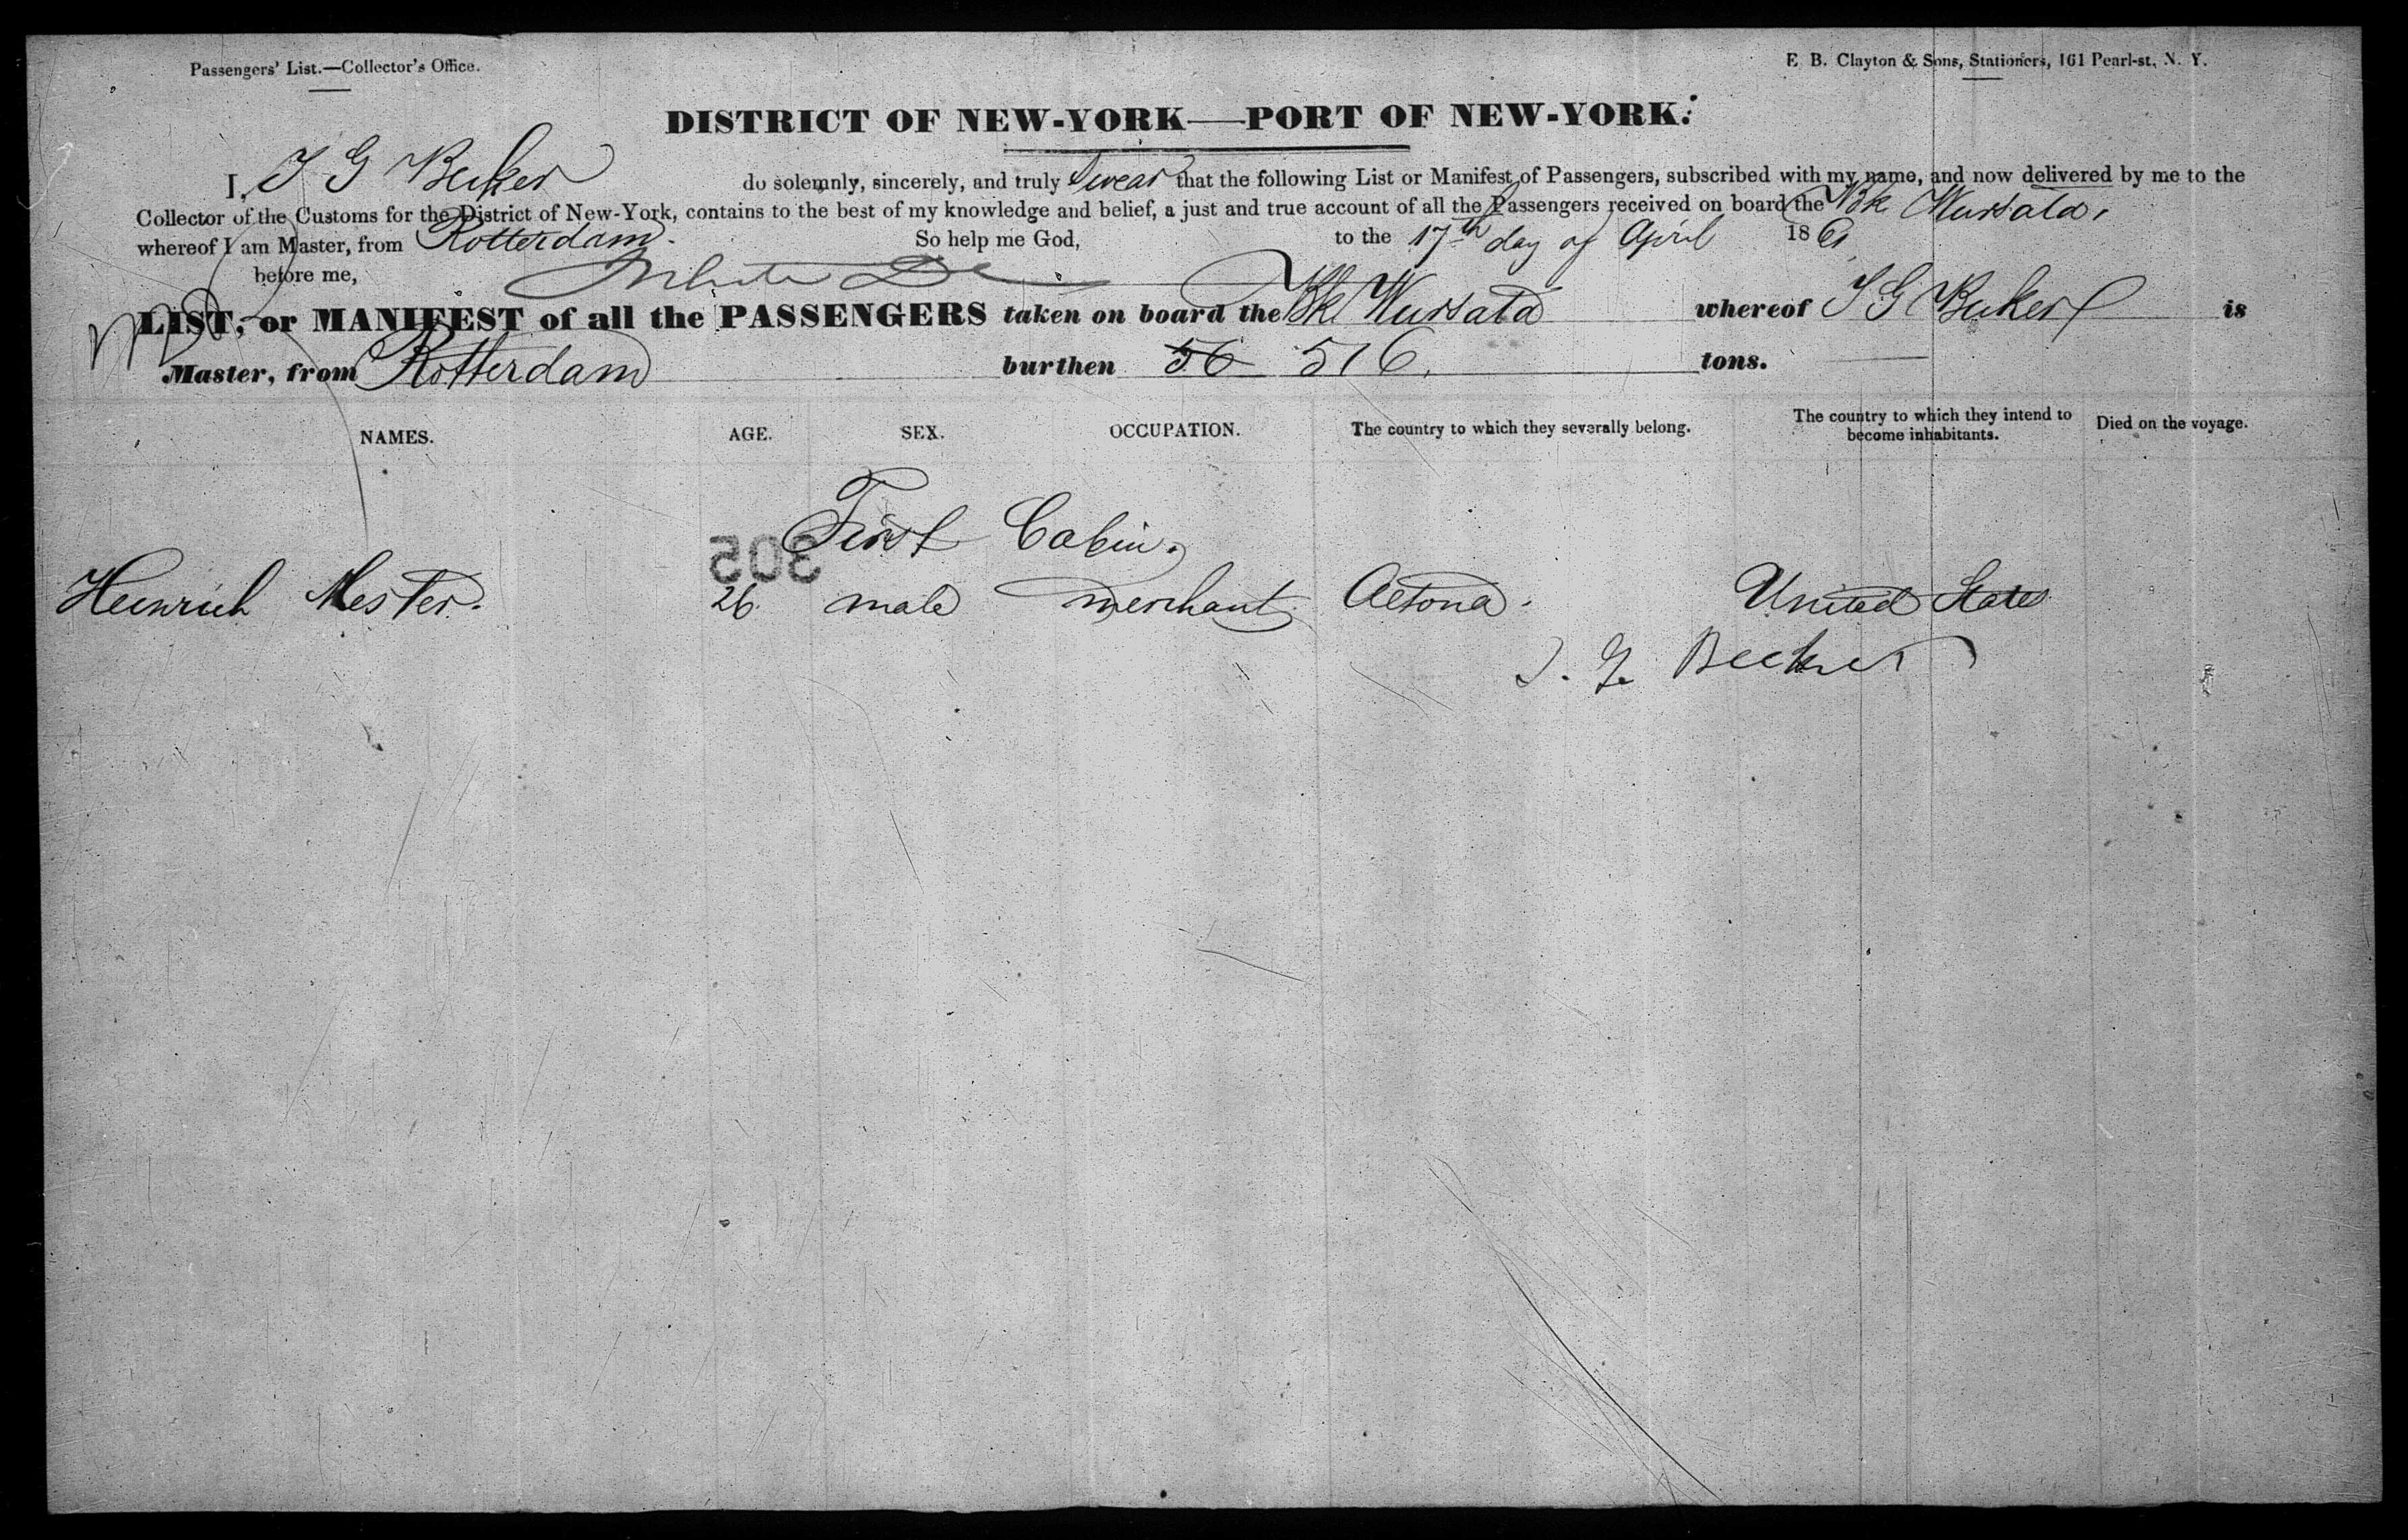 Passengers' List.—Collector's Office.
E. B. Clayton & Sons, Stationers, 161 Pearl-st. N. Y.
DISTRICT OF NEW-YORK—PORT OF NEW-YORK.
I, J G Becker do solemnly, sincerely, and truly Swear that the following List or Manifest of Passengers, subscribed with my name, and now delivered by me to the
Collector of the Customs for the District of New-York, contains to the best of my knowledge and belief, a just and true account of all the Passengers received on board the Bk Wursata,
whereof I am Master, from Rotterdam. So help me God, to the 17th day of April 186
before me,
LIST, or MANIFEST of all the PASSENGERS taken on board the Bk Wursata whereof J G Becker is
Master, from Rotterdam burthen 56 516. tons.
NAMES. AGE. SEX. OCCUPATION. The country to which they severally belong. The country to which they intend to become inhabitants. Died on the voyage.
First Cabin.
305
Heinrich Mester. 26. male merchant. Aetona. United States
J. G. Becker